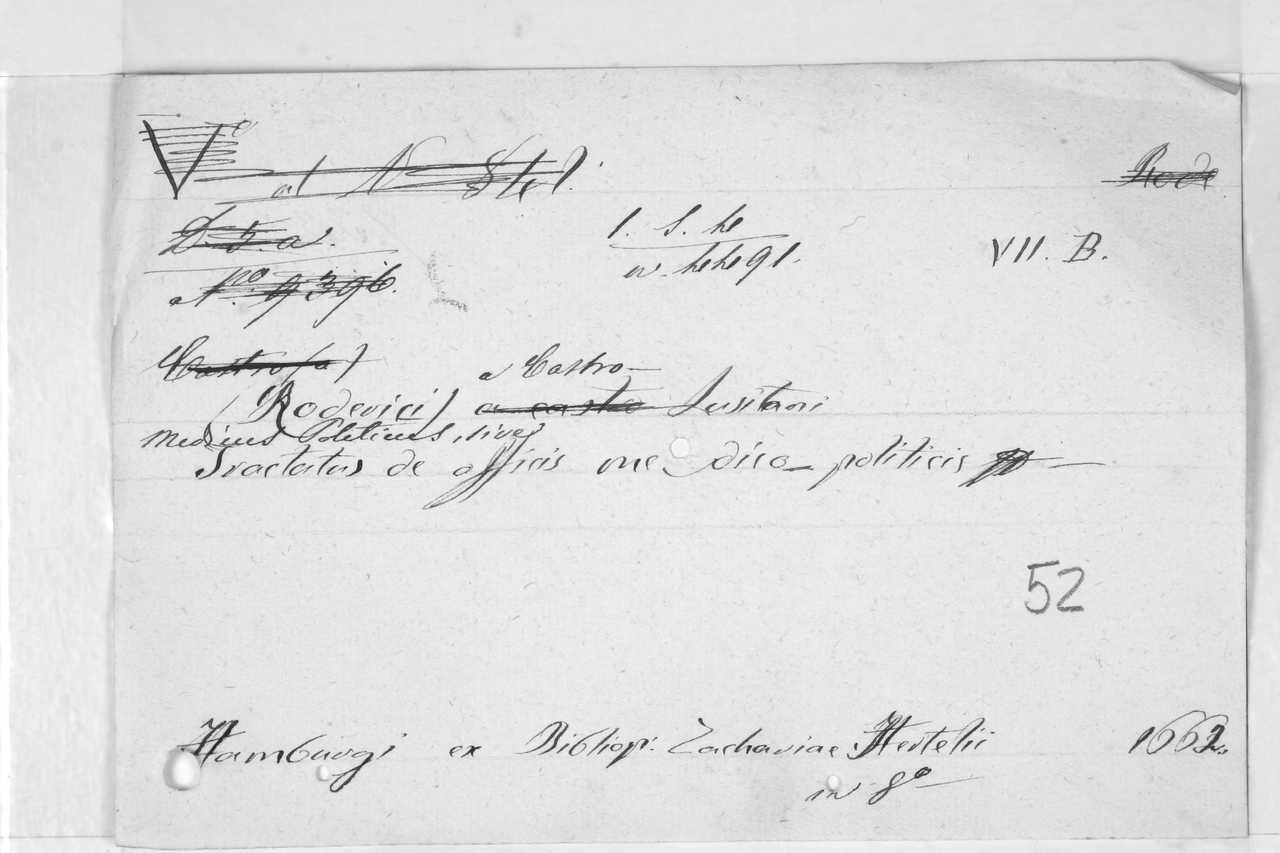 Rode
VII. B.
No 9396.
Castro (a)
a Castro
(Roderici) a castro Lusitani
Medicus Politicus, sive
Tractatus de officis medico-politicis
52
Hamburgi ex Bibliop: Zachariae Hertelii 1662.
in 8o